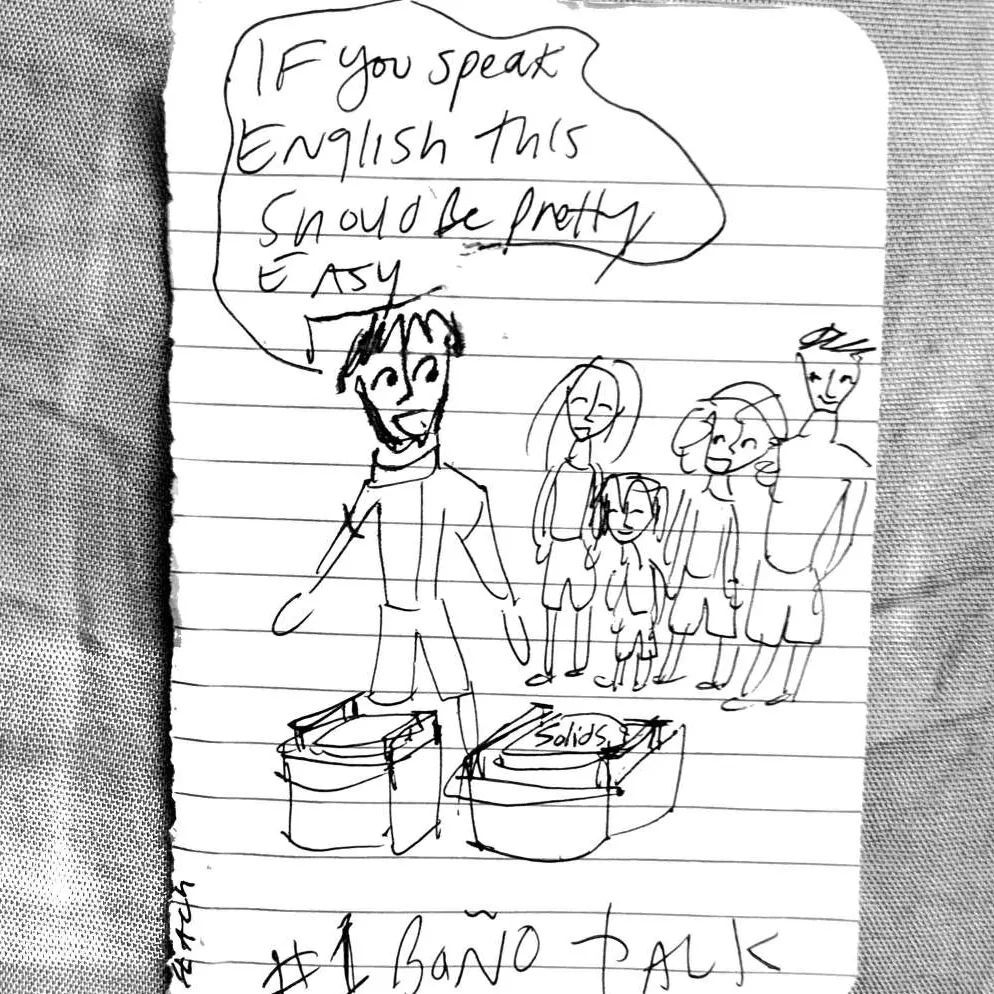 IF you speak
ENglish this
Should Be pretty
EASY
Solids
#1 BaÑO TALK